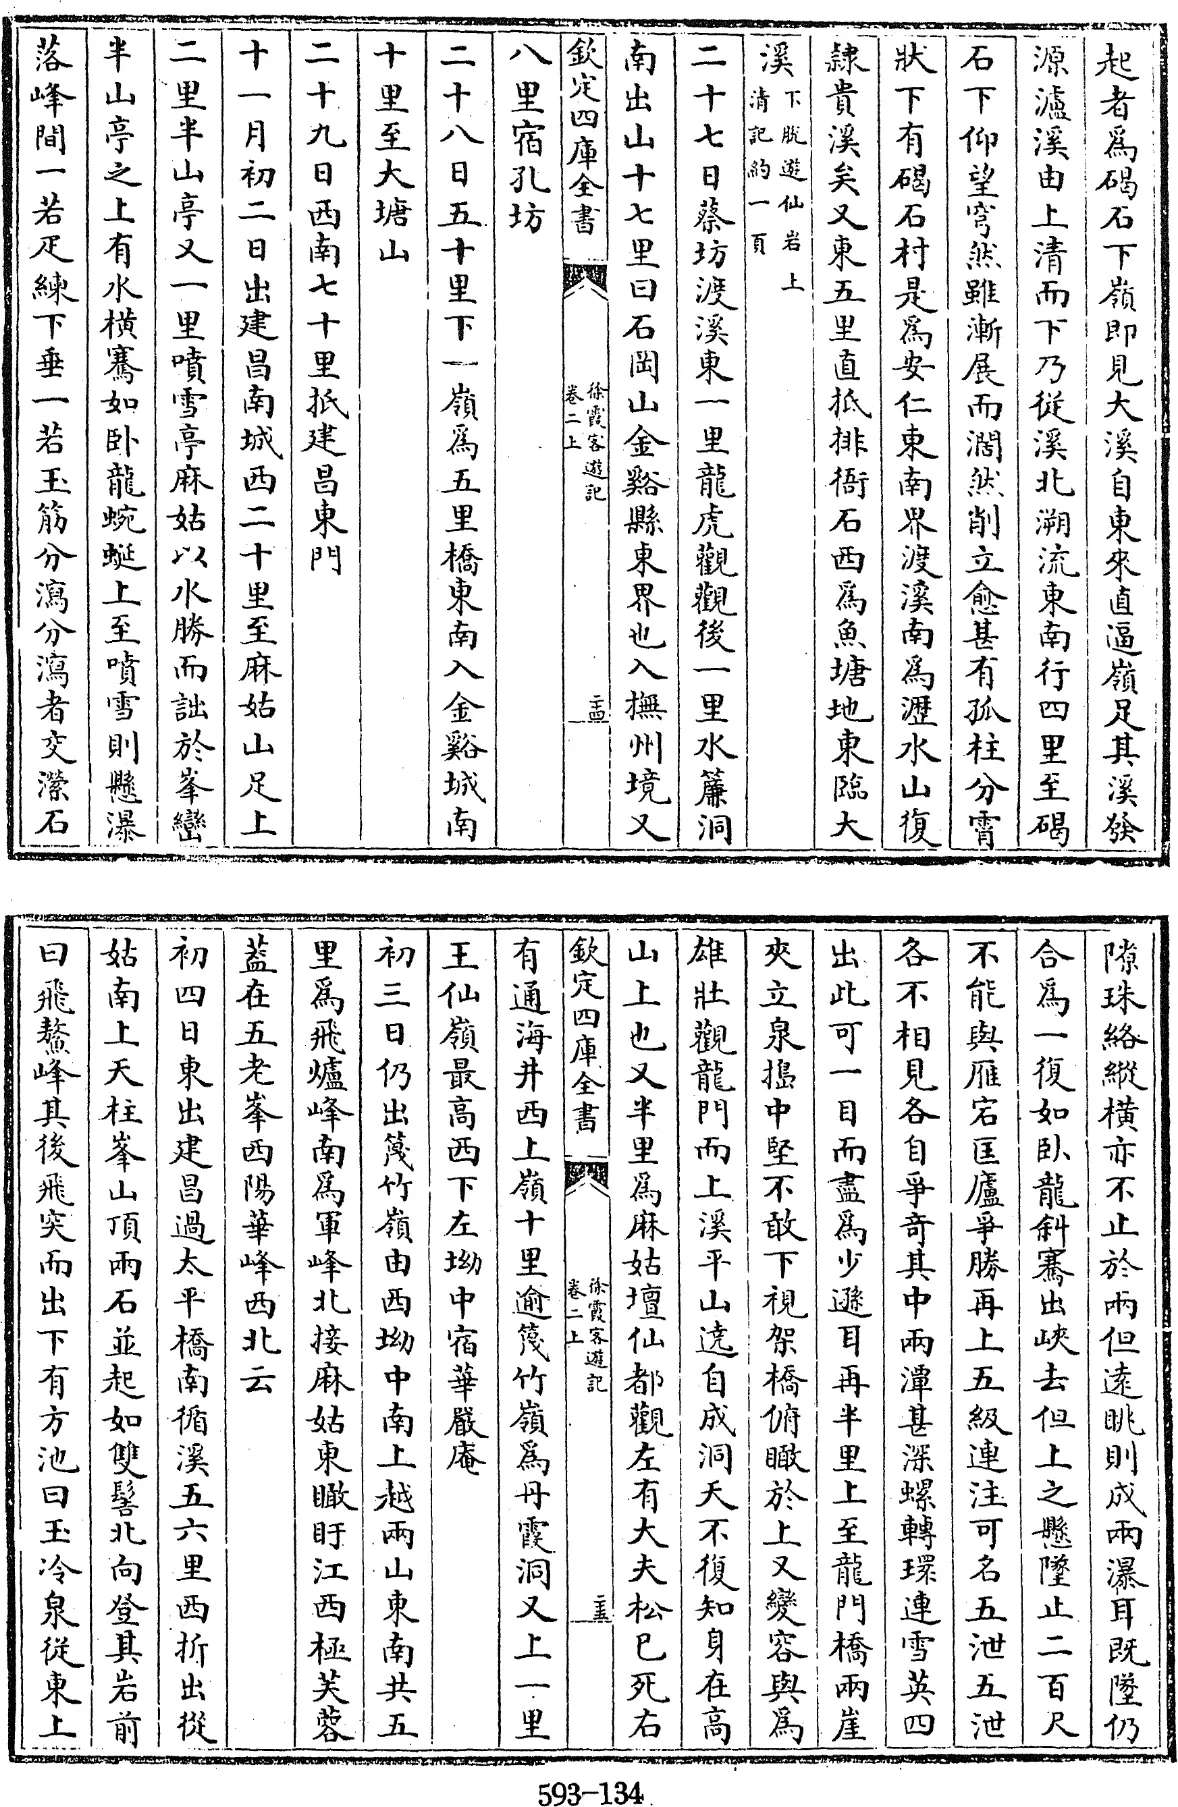 起者爲碣石下嶺即見大溪自東來直逼嶺足其溪發
源瀘溪由上清而下乃從溪北溯流東南行四里至碣
石下仰望穹然雖漸展而濶然削立愈甚有孤柱分霄
狀下有碣石村是爲安仁東南界渡溪南爲瀝水山復
隷貴溪矣又東五里直抵排衙石西爲魚塘地東臨大
溪下脫遊仙岩上清記約一頁
二十七日蔡坊渡溪東一里龍虎觀觀後一里水簾洞
南出山十七里曰石岡山金谿縣東界也入撫州境又
欽定四庫全書
徐霞客遊記
卷二上
八里宿孔坊
二十八日五十里下一嶺爲五里橋東南入金谿城南
十里至大塘山
二十九日西南七十里抵建昌東門
十一月初二日出建昌南城西二十里至麻姑山足上
二里半山亭又一里噴雪亭麻姑以水勝而詘於峯巒
半山亭之上有水橫騫如卧龍蜿蜒上至噴雪則懸瀑
落峰間一若疋練下垂一若玉筯分瀉分瀉者交濚石
隙珠絡縱橫亦不止於兩但遠眺則成兩瀑耳既墜仍
合爲一復如卧龍斜騫出峽去但上之懸墜止二百尺
不能與雁宕匡廬爭勝再上五級連注可名五泄五泄
各不相見各自爭奇其中兩潭甚深螺轉環連雪英四
出此可一目而盡爲少遜耳再半里上至龍門橋兩崖
夾立泉搗中堅不敢下視架橋俯瞰於上又變容與爲
雄壯觀龍門而上溪平山遶自成洞天不復知身在高
山上也又半里爲麻姑壇仙都觀左有大夫松已死右
欽定四庫全書
徐霞客遊記
卷二上
有通海井西上嶺十里逾篾竹嶺爲丹霞洞又上一里
王仙嶺最高西下左坳中宿華嚴庵
初三日仍出篾竹嶺由西坳中南上越兩山東南共五
里爲飛爐峰南爲軍峰北接麻姑東瞰盱江西極芙蓉
葢在五老峯西陽華峰西北云
初四日東出建昌過太平橋南循溪五六里西折出從
姑南上天柱峯山頂兩石並起如雙髻北向登其岩前
曰飛鰲峰其後飛突而出下有方池曰玉冷泉從東上
593-134